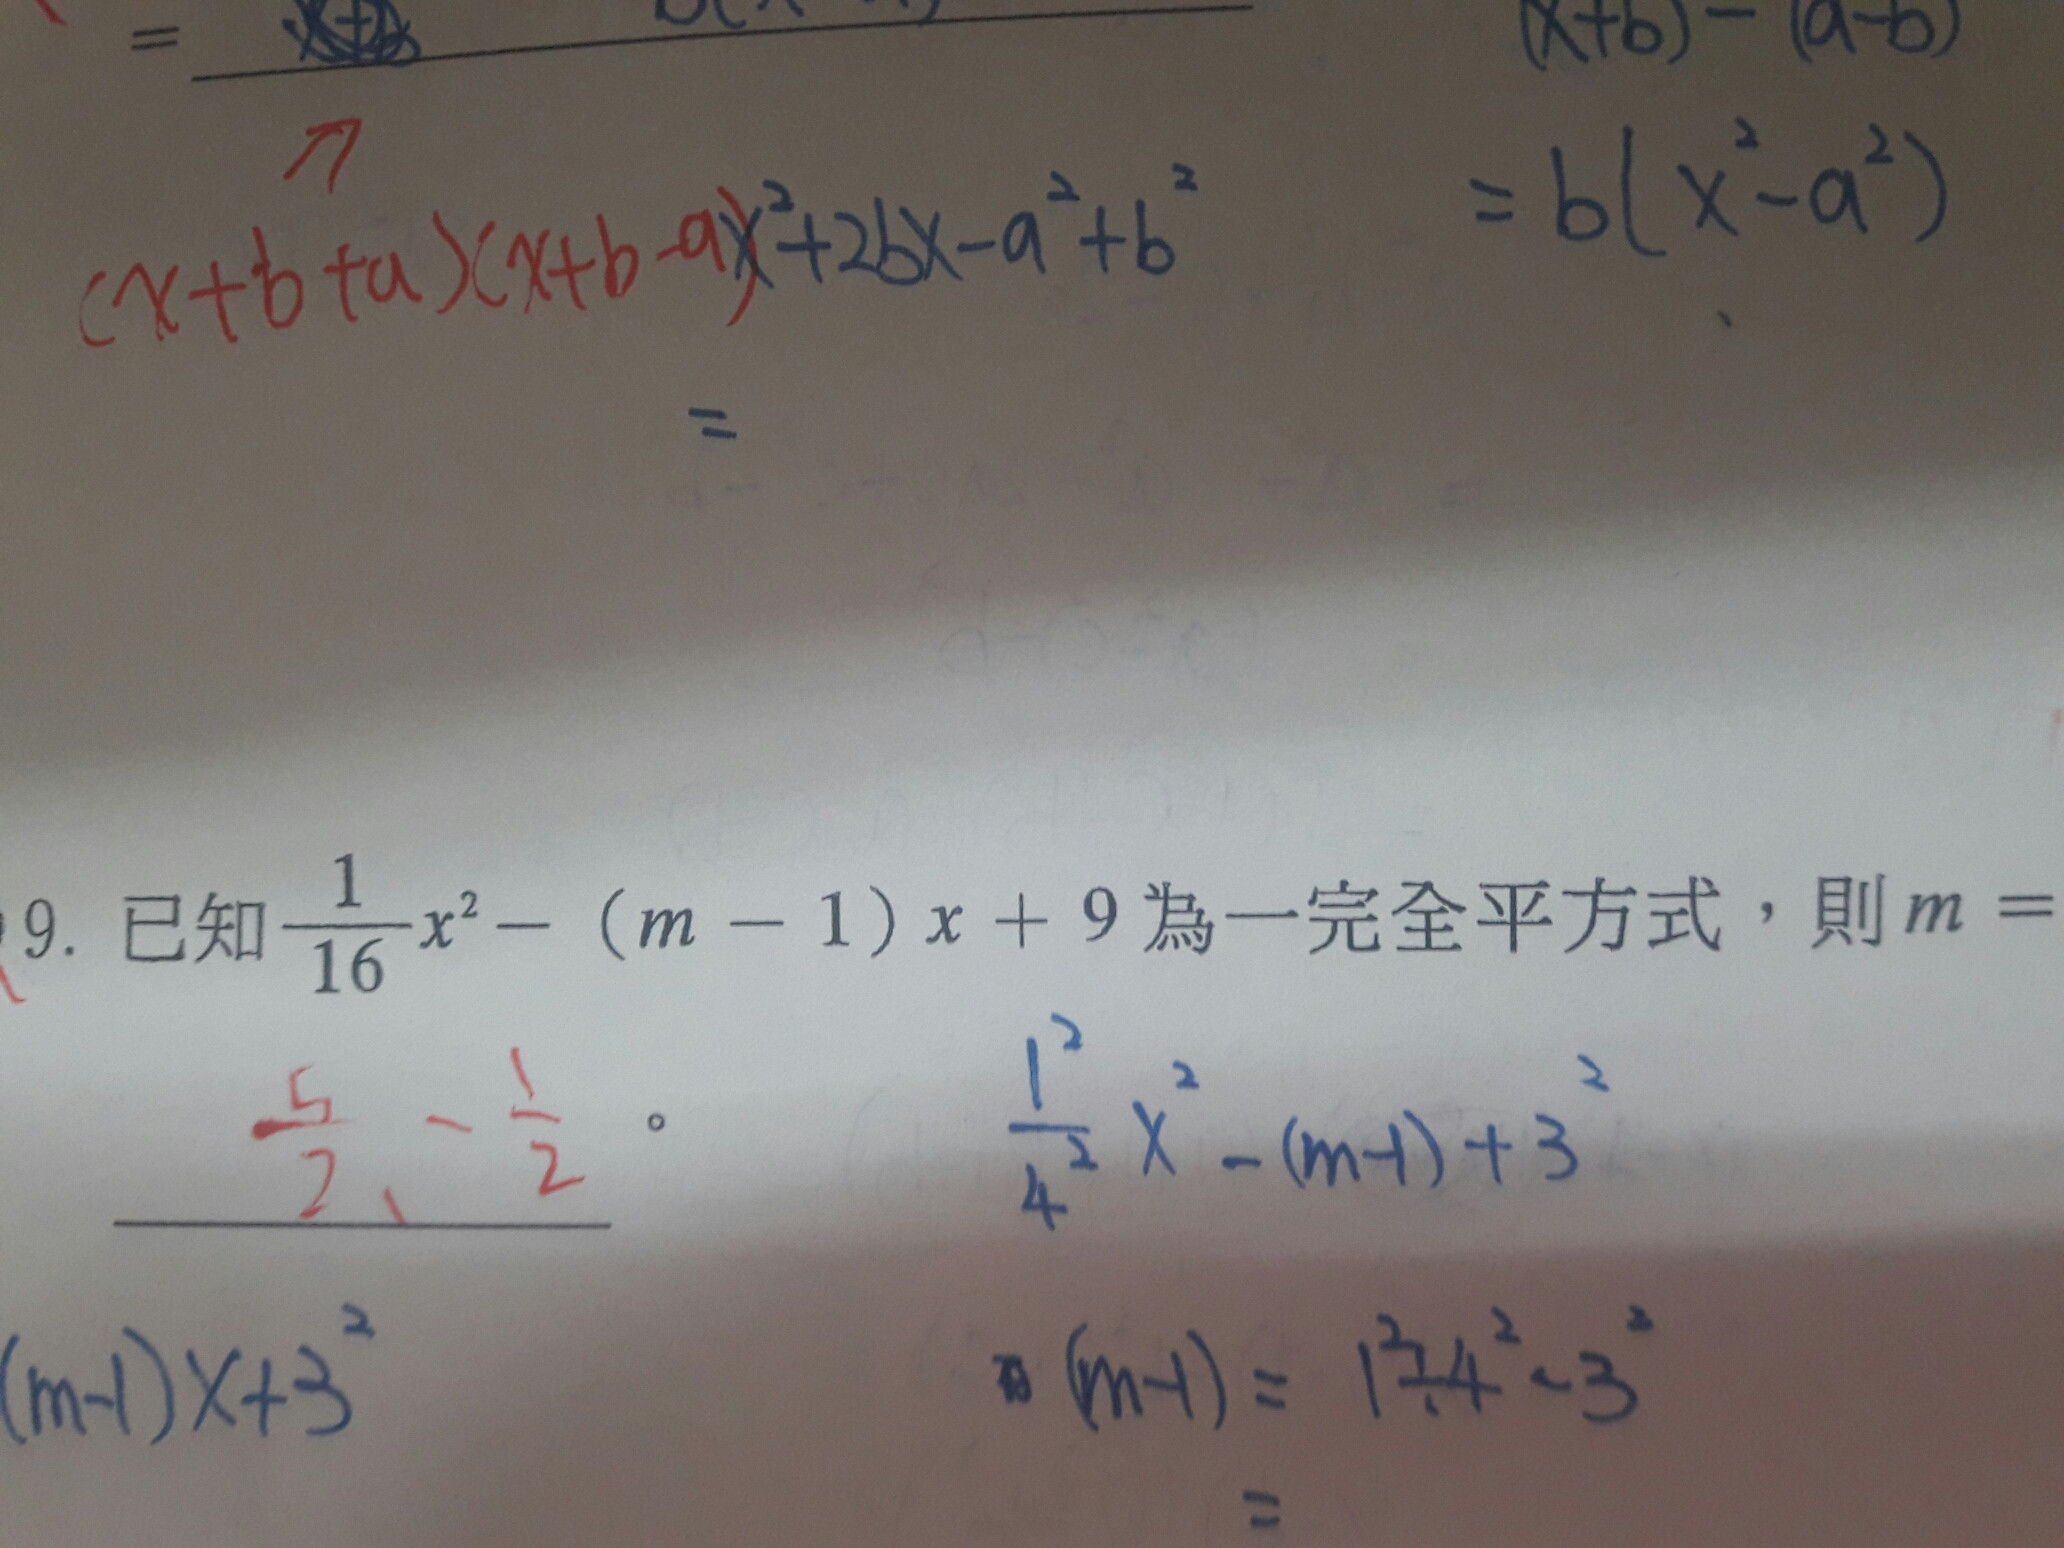 =
(x+b)-(a-b)
(x+b+a)(x+b-a) x²+2bx-a²+b²
=b(x²-a²)
=
9. 已知 1/16 x² - (m - 1) x + 9 為一完全平方式，則 m =
5/2、-1/2 。
1²/4² x² - (m-1) + 3²
(m-1)x+3²
(m-1) = 1²÷4² - 3²
=